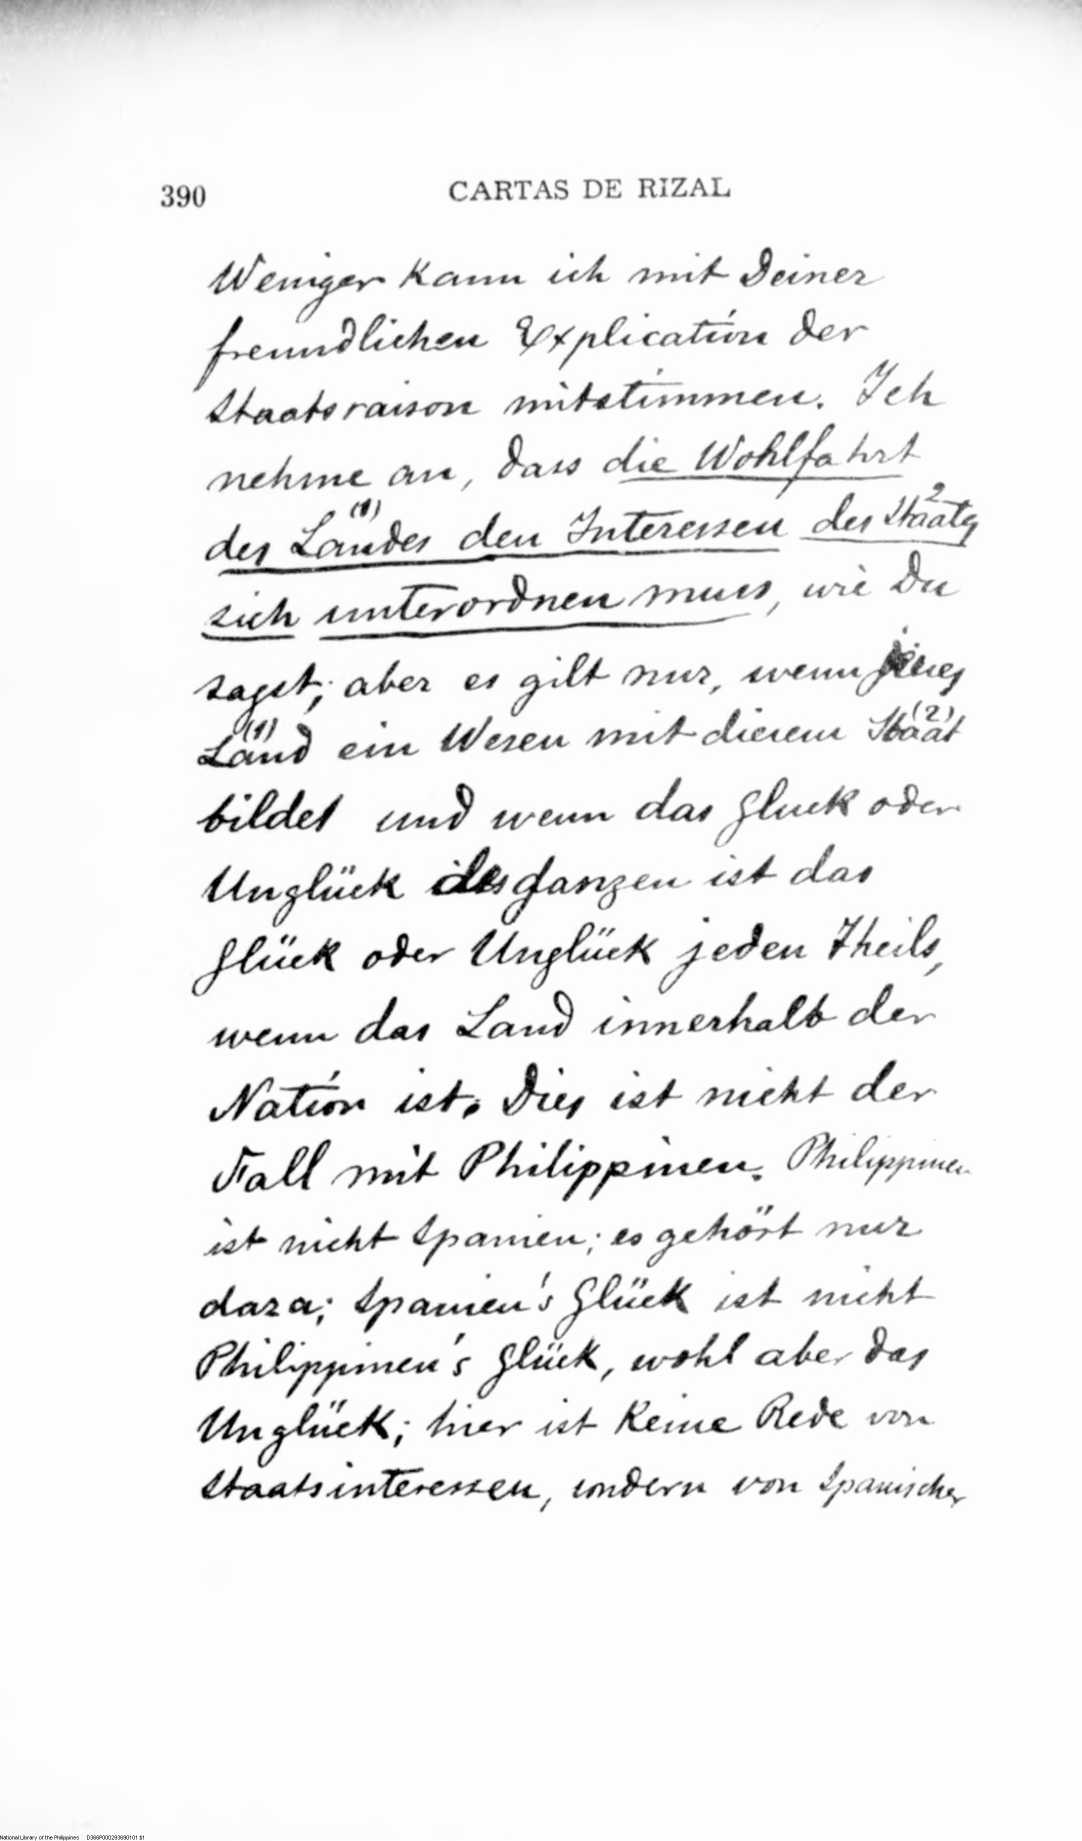 390
CARTAS DE RIZAL
Weniger kann ich mit Deiner
freundlichen Explicatión der
Staatsraison mitstimmen. Ich
nehme an, dass die Wohlfahrt
des Landes (1) den Interessen des Staats 2
sich unterordnen muss, wie Du
sagst; aber es gilt nur, wenn jenes
Land (1) ein Wesen mit diesem Staat (2)
bildet und wenn das Gluck oder
Unglück des Ganzen ist das
Glück oder Unglück jeden Theils,
wenn das Land innerhalb der
Natión ist. Dies ist nicht der
Fall mit Philippinen. Philippinen
ist nicht Spanien; es gehört nur
daza; Spanien's Glück ist nicht
Philippinen's Glück, wohl aber das
Unglück; hier ist keine Rede von
Staatsinteressen, sondern von Spanischer
National Library of the Philippines